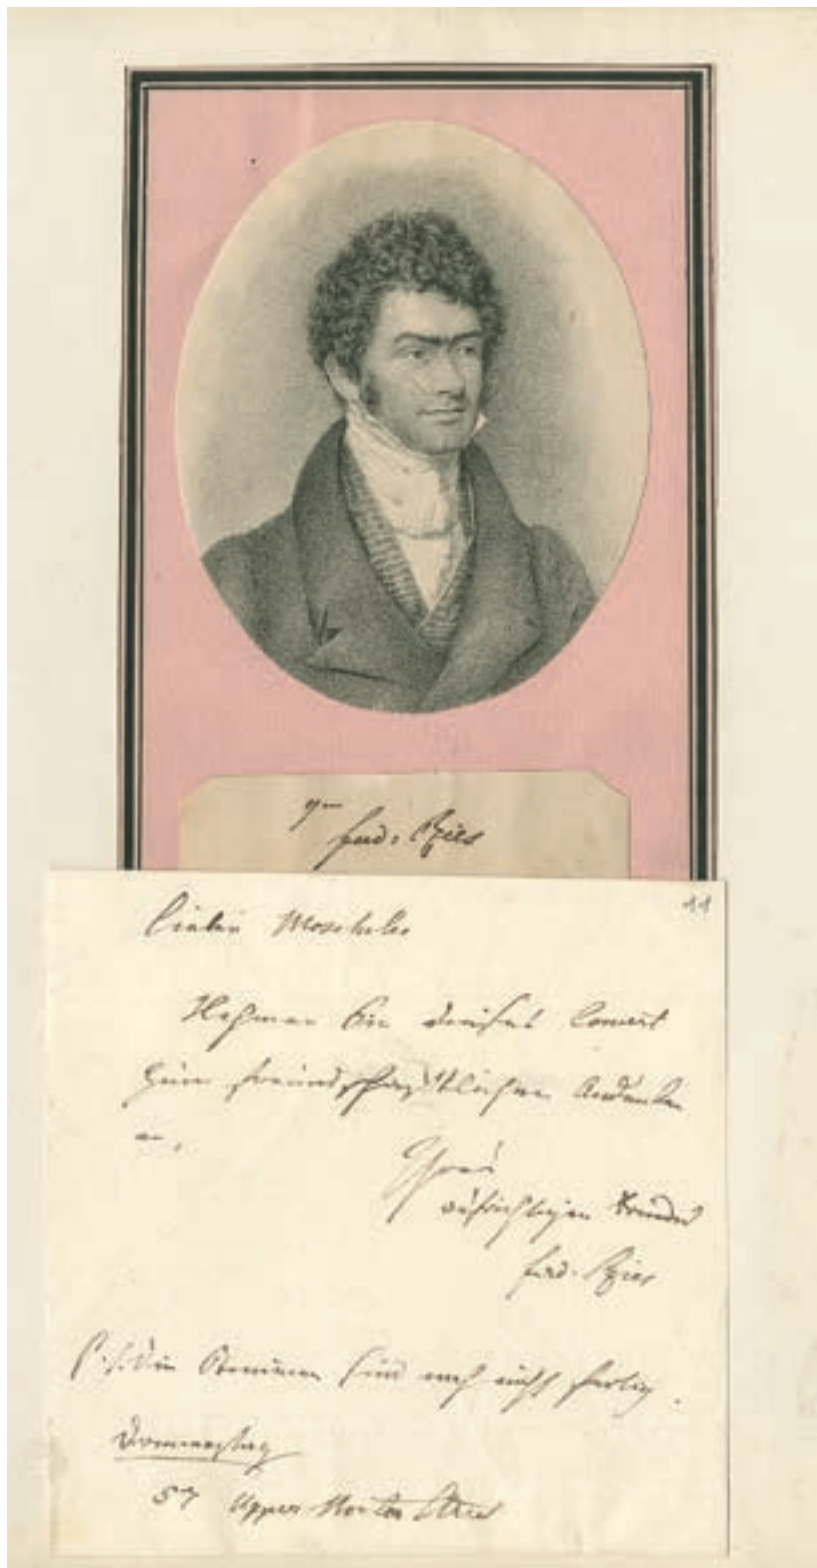 Ferd. Ries
11
Lieber Moscheles
Nehmen Sie dieses Concert
zum freundschaftlichen Andenken
an.
Ihres
aufrichtigen Freundes
Ferd. Ries
P.S. Die Stimmen sind noch nicht fertig.
Donnerstag
57 Upper Norton Street